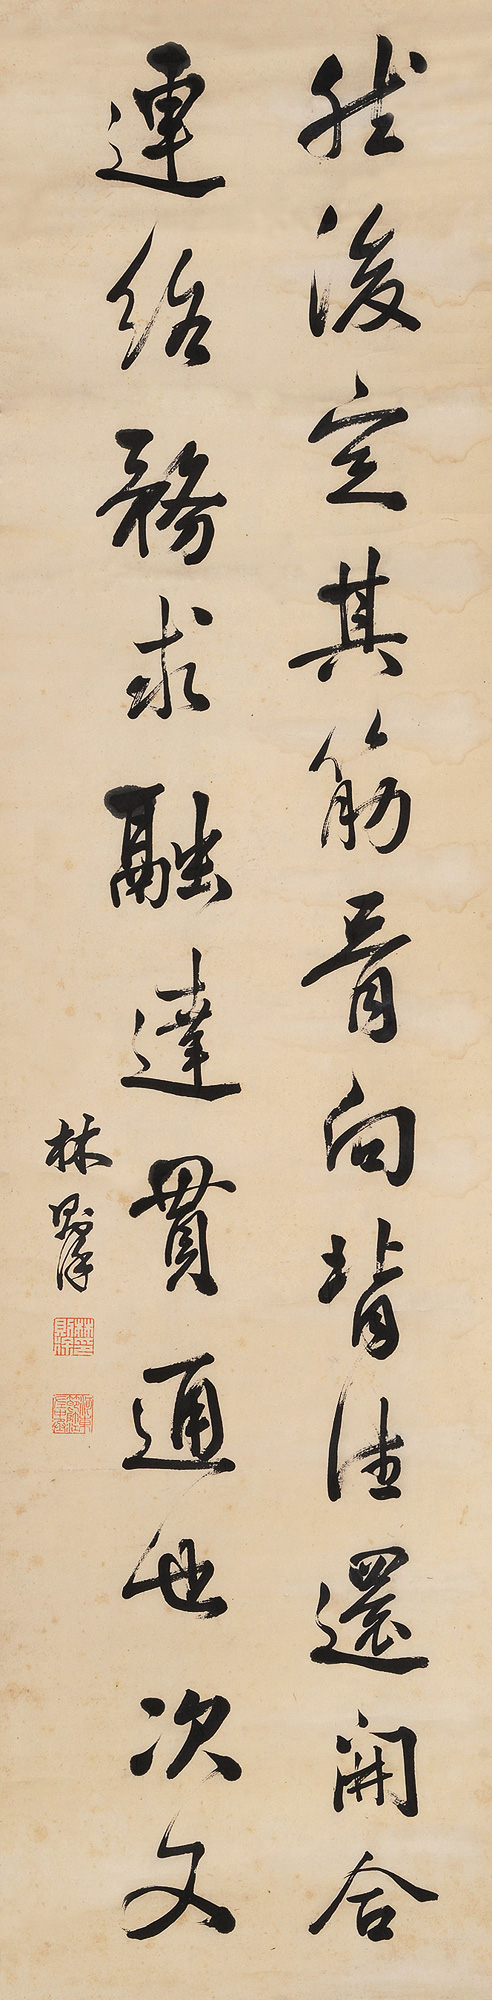 然後定其筋骨向背往還開合
連絡務求融達貫通也次文
林則徐